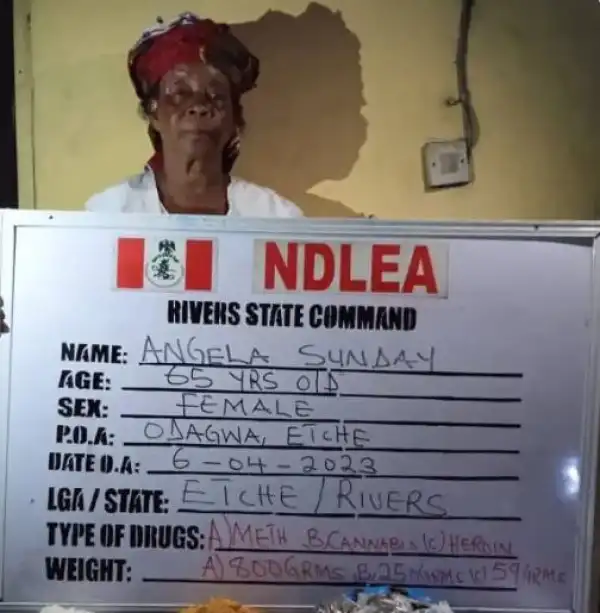 NDLEA
RIVERS STATE COMMAND
NAME: ANGELA SUNDAY
AGE: 65 YRS OLD
SEX: FEMALE
P.O.A: ODAGWA, ETCHE
DATE O.A: 6-04-2023
LGA / STATE: ETCHE / RIVERS
TYPE OF DRUGS: A) METH B. CANNABIS (C) HEROIN
WEIGHT: A) 800GRMS B. (C) 59GRMS